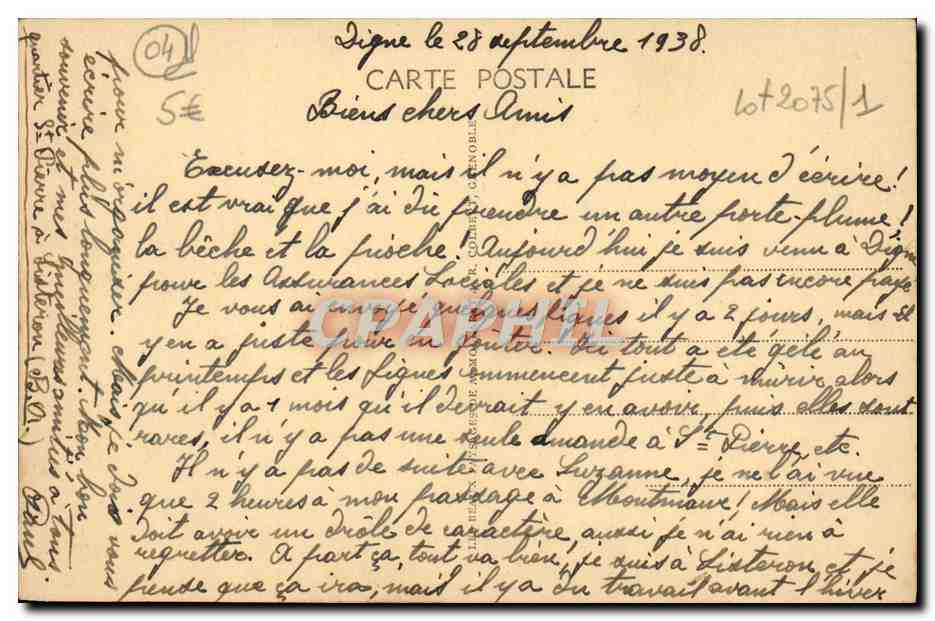 Digne le 28 septembre 1938.
04
CARTE POSTALE
5€
lot 2075/1
Biens chers Amis
Excusez-moi, mais il n'y a pas moyen d'écrire!
il est vrai que j'ai dû prendre un autre porte-plume!
la bêche et la pioche! Aujourd'hui je suis venu à Digne
pour les Assurances Sociales et je ne suis pas encore payé
Je vous ai envoyé quelques figues il y a 2 jours, mais il
y en a juste pour en goûter. Ici tout a été gêlé au
printemps et les figues commencent juste à mûrir alors
qu'il y a 1 mois qu'il devrait y en avoir, puis elles sont
rares, il n'y a pas une seule amande à St Pierre, etc.
Il n'y a pas de suite avec Suzanne, je ne l'ai vue
que 2 heures à mon passage à Montmaur! Mais elle
doit avoir un drôle de caractère, aussi je n'ai rien à
regretter. A part ça, tout va bien, je suis à Sisteron et je
pense que ça ira, mais il y a du travail avant l'hiver
pour m'organiser. Mais je vous
écrire plus longuement. Mon bon
souvenir et mes meilleures amitiés à tous
Paul
quartier St Pierre à Sisteron (B.A)
CRAPHIL